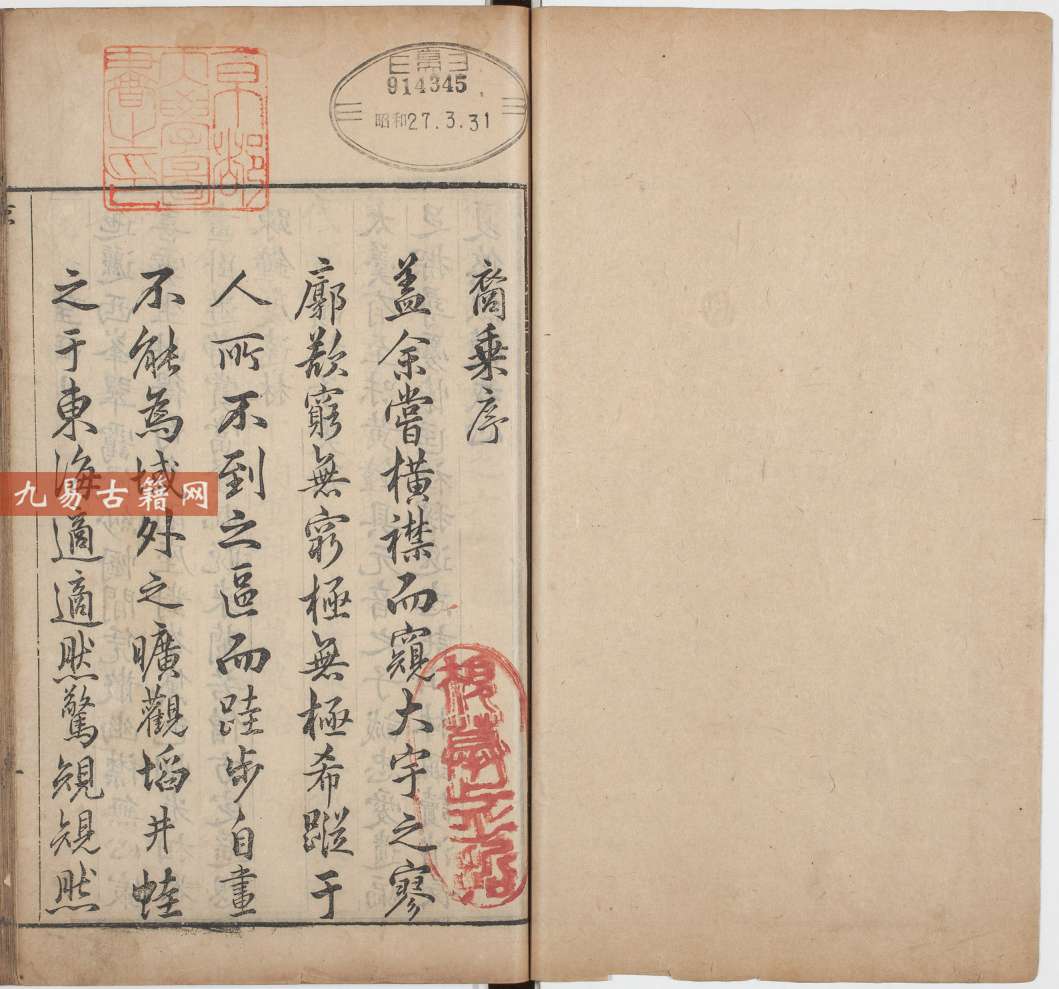 京都
大學圖
書之印
914345
昭和27.3.31
裔乘序
蓋余嘗橫襟而窺大宇之寥
廓欲窮無窮極無極希蹤于
人所不到之區而跬步自畫
不能為域外之曠觀埳井蛙
之于東海適適然驚䂓䂓然
九易古籍网